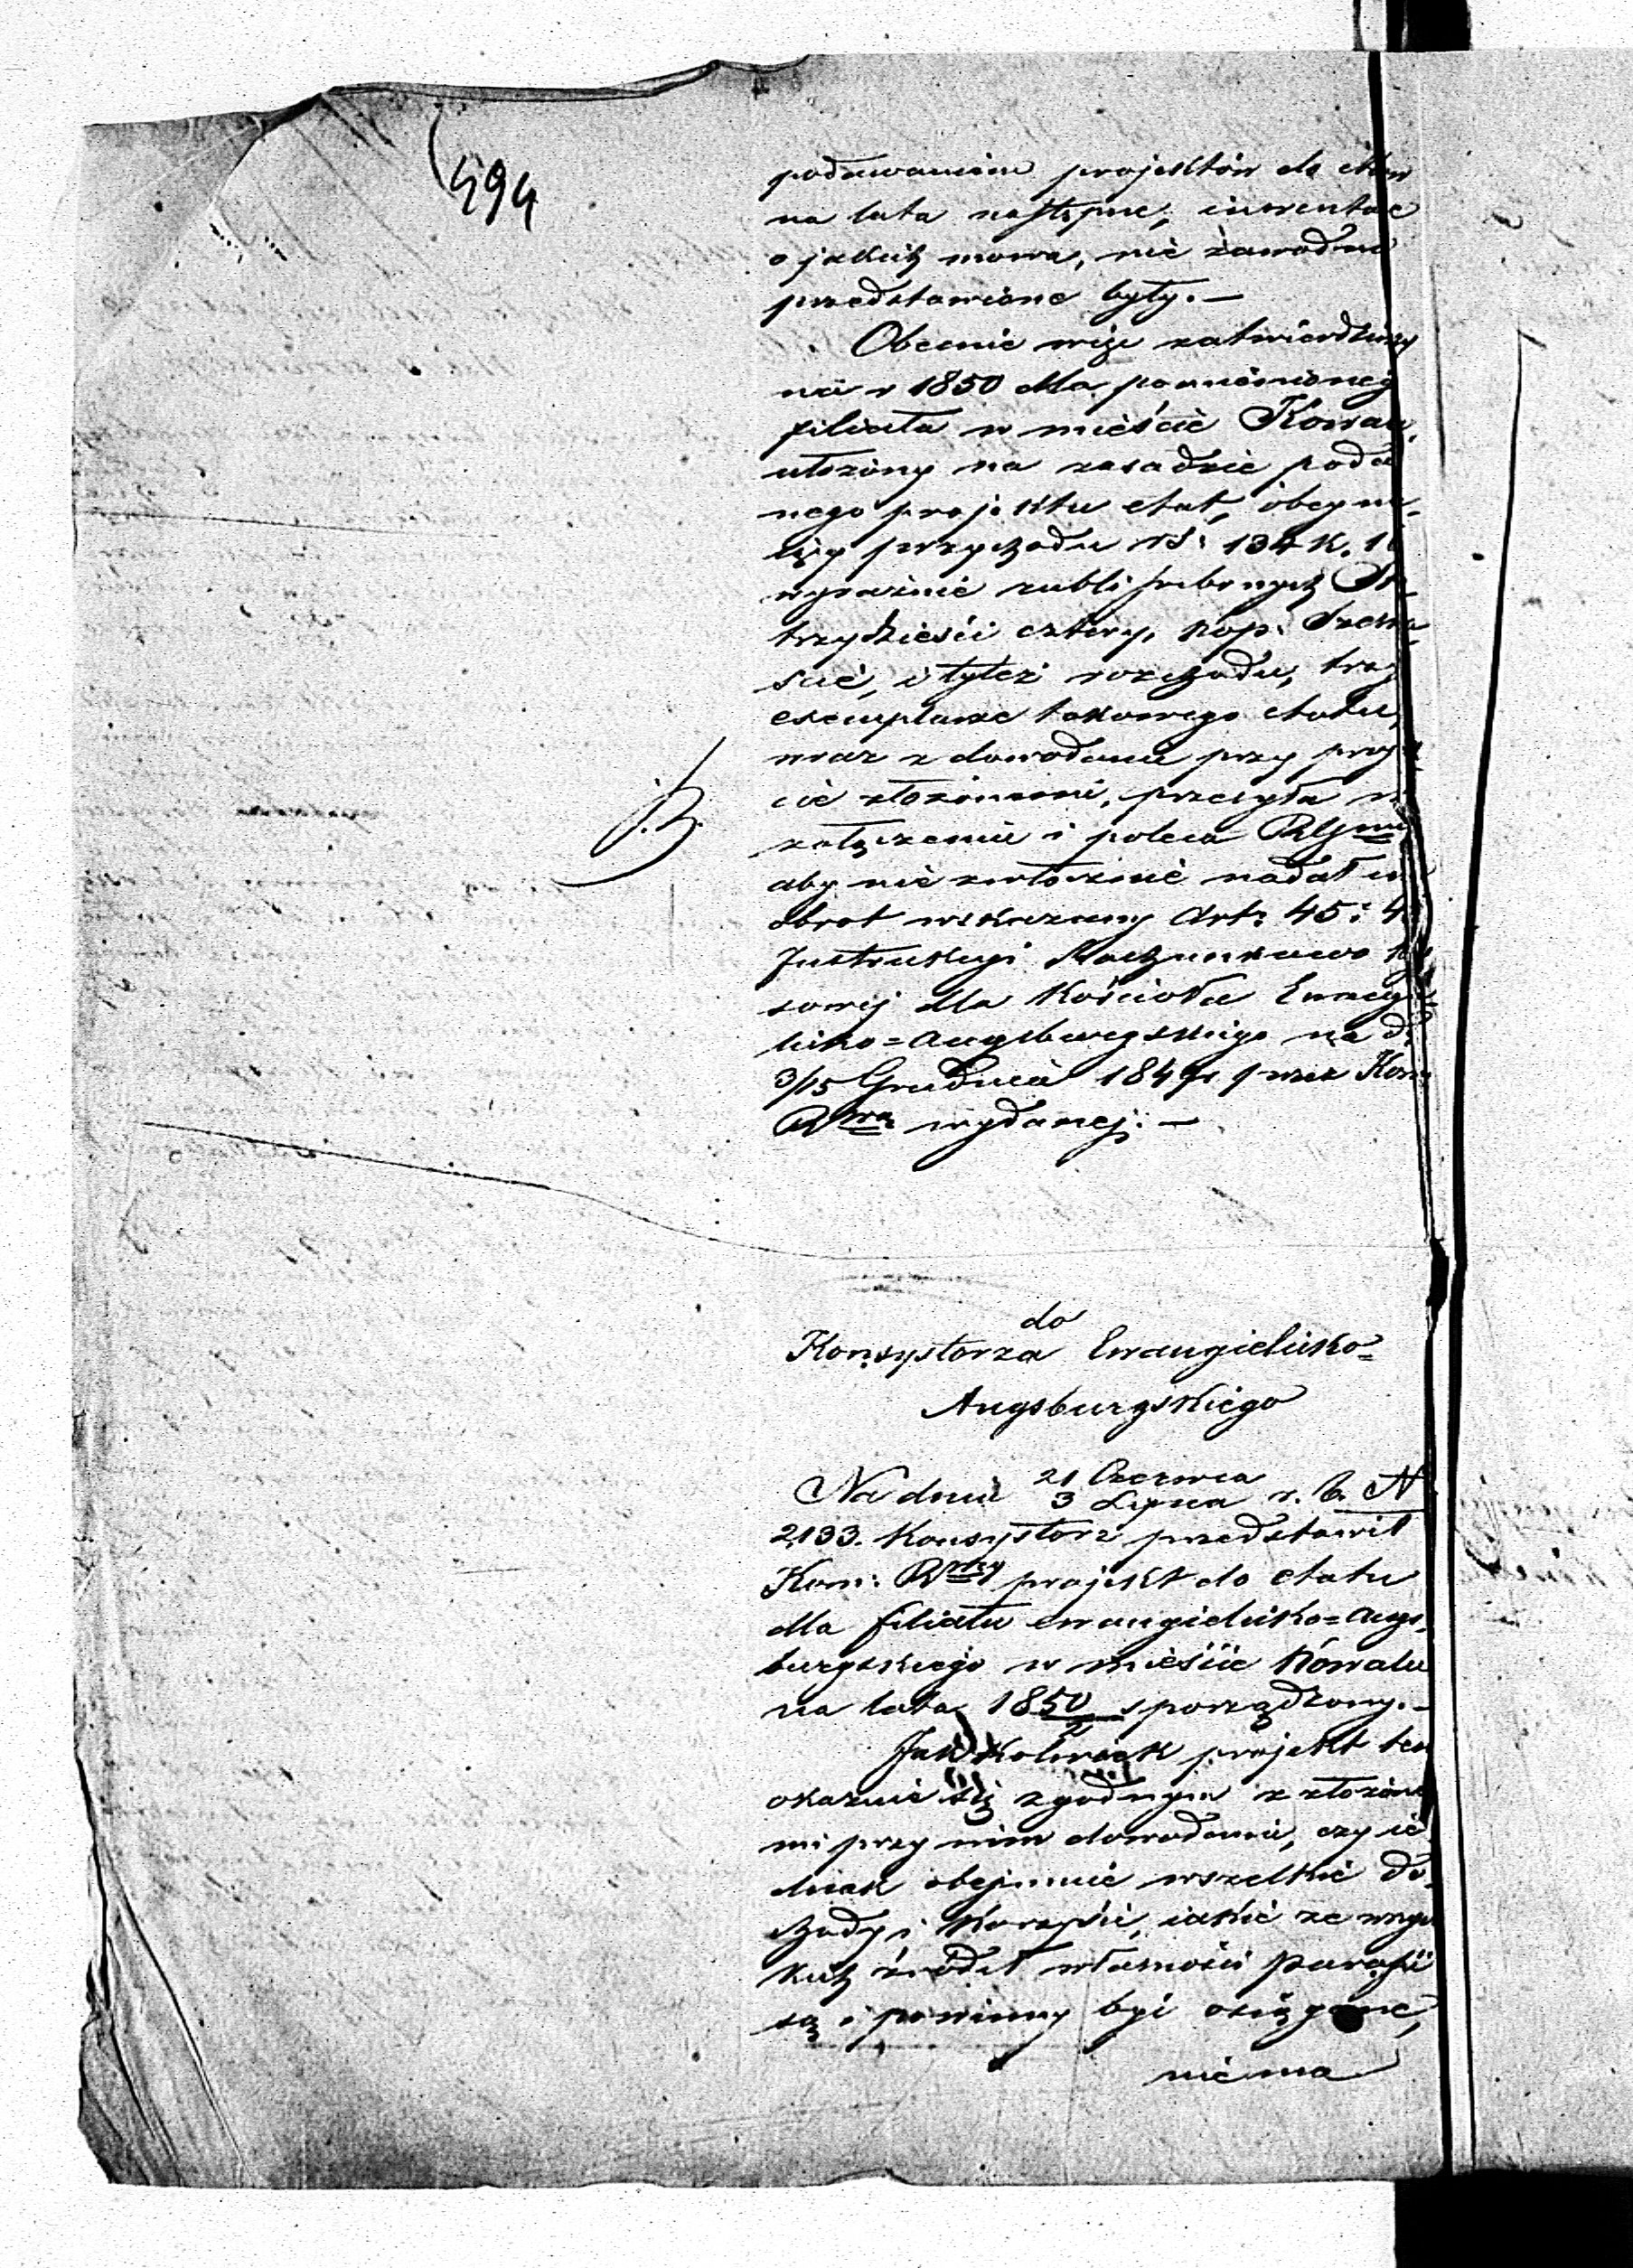 494
podawaniem projektów do etatów
na lata następne, inwentarze
o jakich mowa, nie zawodnie
przedstawione były. —
Obecnie więc zatwierdziwszy
na r 1850 dla pomienionego
filiału w mieście Kowalu,
ułożony na zasadzie poda
nego projektu etat, obeymu-
iący przychodu rs: 134 k. 1
wyraźnie rubli srebrnych Sto
trzydzieści cztery, kop: Szesna
ście, i tyleż rozchodu, trzy
exemplarze takowego etatu,
wraz z dowodami przy proje
cie złożonemi, przesyła w
załączeniu i poleca
aby nie zwłocznie nadał im
obrot wskazany Art: 45 i 4
Instrukcyi Rachunkowo Kas
sowej dla Kościoła Ewangie
licko=Augsburgskiego na d.
3/15 Grudnia 184 przez Kom
R wydanej. —
do
Konsystorza Ewangielicko=
Augsburgskiego
Na dniu 21 Czerwca
3 Lipca r. b. N
2133. Konsystorz przedstawił
Kom: projekt do etatu
dla filiału ewangielicko=Augs-
burgskiego w mieście Kowalu
na lata 1850 sporządzony. —
Jak kolwiek projekt ten
okazuie się zgodnym z złożone
mi przy nim dowodami, czy ie
dnak obejmuie wszelkie do-
chody i korzyści, iakie ze wszyst
kich źródeł własności Parafii
są i powinny być osiągane,
nie ma